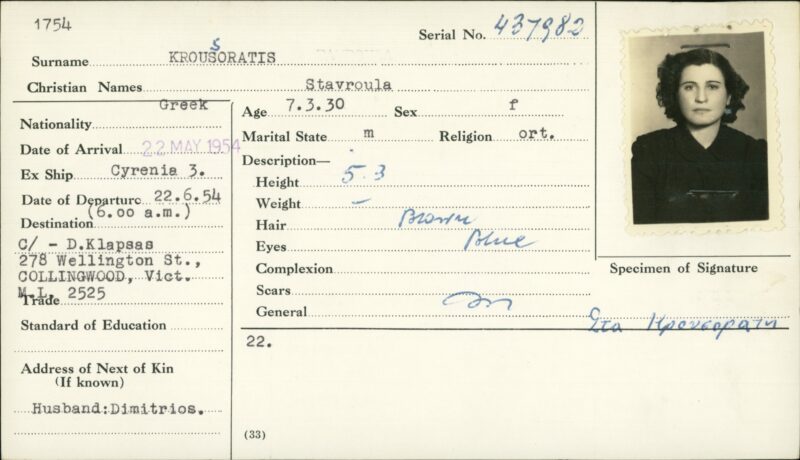 1754
Serial No. 437982
Surname KROUSSORATIS
Christian Names Stavroula
Nationality Greek
Date of Arrival 22 MAY 1954
Ex Ship Cyrenia 3.
Date of Departure 22.6.54
(6.00 a.m.)
Destination
C/ - D.Klapsas
278 Wellington St.,
COLLINGWOOD, Vict.
M.I. 2525
Trade
Standard of Education
Address of Next of Kin
(If known)
Husband:Dimitrios.
Age 7.3.30 Sex f
Marital State m Religion ort.
Description—
Height 5.3
Weight –
Hair Brown
Eyes Blue
Complexion
Scars
General
22.
(33)
Specimen of Signature
Στα Κρουσορατη